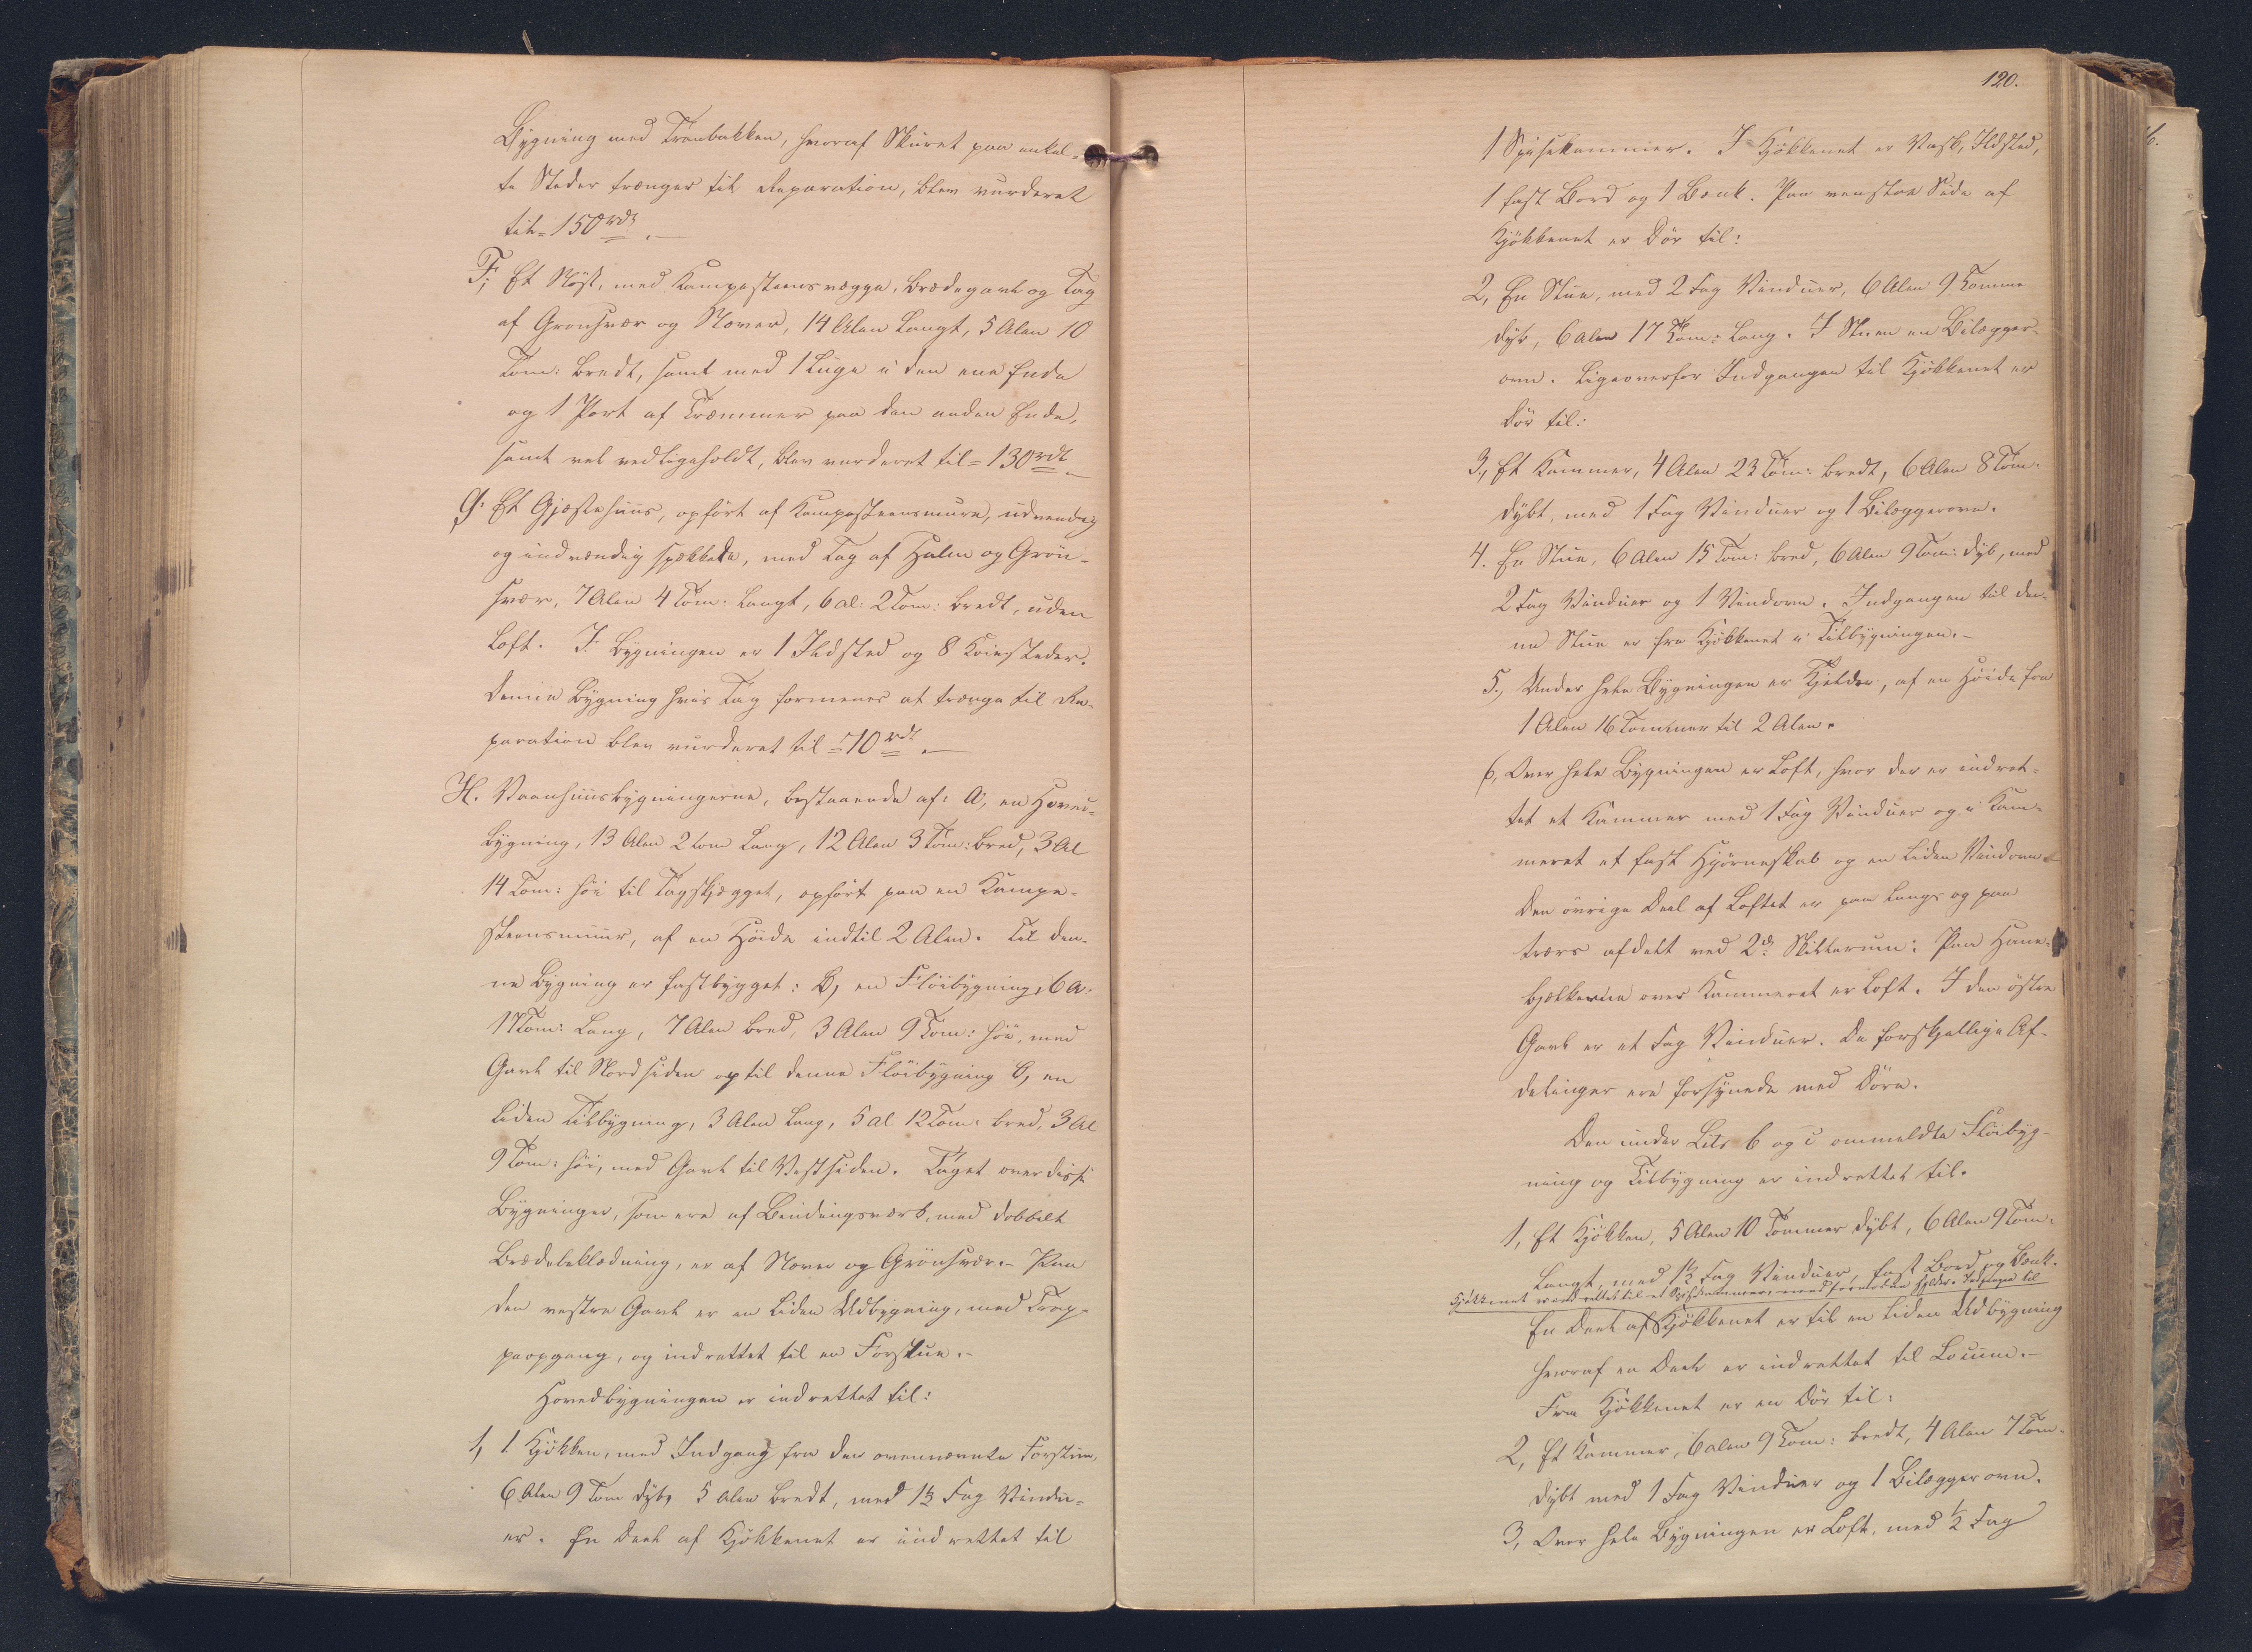 Bygning med Trönbakken, hvoraf Skuret paa enkel-
te Steder trænger til Reparation, blev vurderet
til = 150 rdl.
F; Et Nöst, med Kampesteensvægge, Brædegavl og Tag
af Gronsvær og Næver, 14 Alen Langt, 5 Alen 10
Tom: bredt, samt med 1 Luge i den ene Ende
og 1 Port af Træmmer paa den anden Ende,
samt vel vedligeholdt, blev vurderet til = 130 rdl.
G: Et Gjæstehuus, opfört af Kampesteensmure, udvendig
og indvendig spækkede, med Tag af Halm og Grön-
svær, 7 Alen 4 Tom: Langt, 6 al: 2 Tom: bredt, uden
Loft. I Bygningen er 1 Ildsted og 8 Koiesteder.
Denne Bygning hvis Tag formenes at trænge til Re-
paration blev vurderet til = 70 rdl.
H. Vaanhuusbygningerne, bestaaende af: A, en Hoved-
bygning, 13 Alen 2 tom Lang, 12 Alen 3 Tom: bred, 3 Al
14 Tom: höi til Tagskjægget, opfört paa en Kampe-
steensmuur, af en Höide indtil 2 Alen. Til den-
ne Bygning er fastbygget: B, en Flöibygning, 6 A.
17 Tom: Lang, 7 Alen bred, 3 Alen 9 Tom: höi, med
Gavl til Nordsiden og til denne Flöibygning C, en
liden Tilbygning, 3 Alen Lang, 5 al 12 Tom: bred, 3 Al
9 Tom: höi, med Gavl til Vestsiden. Taget over disse
Bygninger, som ere af Bindingsværk, med dobbelt
Brædebeklædning, er af Næver og Grönsvær. - Paa
den vestre Gavl er en liden Udbygning, med Trap-
peopgang, og indrettet til en Forstue. -
Hovedbygningen er indrettet til:
1, 1 Kjökken, med Indgang fra den ovennævnte Forstue,
6 Alen 9 Tom dybt 5 Alen bredt, med 1½ Fag Vindu-
er. En Deel af Kjökkenet er indrettet til
120.
1 Spisekammer. I Kjökkenet er Vask, Ildsted,
1 fast Bord og 1 Bænk. Paa venstre Side af
Kjökkenet er Dör til:
2, En Stue, med 2 Fag Vinduer, 6 Alen 9 Tomme
dyb, 6 Alen 17 Tom: Lang. I Stuen en Bilægger-
ovn. Ligeoverfor Indgangen til Kjökkenet er
Dör til:
3, Et Kammer, 4 Alen 23 Tom: bredt, 6 Alen 8 Tom.
dybt, med 1 Fag Vinduer og 1 Bilæggerovn.
4. En Stue, 6 Alen 15 Tom: bred, 6 Alen 9 Tom: dyb, med
2 Fag Vinduer og 1 Vindovn. Indgangen til den-
ne Stue er fra Kjökkenet i Tilbygningen. -
5, Under hele Bygningen er Kjelder, af en Höide fra
1 Alen 16 Tommer til 2 Alen.
6, Over hele Bygningen er Loft, hvor der er indret-
tet et Kammer med 1 Fag Vinduer og i Kam-
meret et fast Hjörneskab og en liden Vindovn
Den övrige Deel af Loftet er paa langs og paa
tværs afdelt ved 2de Skillerum: Paa Hane-
bjelkerne over Kammeret er Loft. I den östre
Gavl er et Fag Vinduer. De forskjellige Af-
delinger ere forsynede med Döre.
Den under Litr B og C ommeldte Flöibyg-
ning og Tilbygning er indrettet til.
1, Et Kjökken, 5 Alen 10 Tommer dybt, 6 Alen 9 Tom:
Langt, med 1½ Fag Vinduer, fast Bord og Bænk.
Kjökkenet indrettet til et Spisekammer, med Kjelder. Indgangen til
En Deel af Kjökkenet er til en liden Udbygning
hvoraf en Deel er indrettet til Locum. -
Fra Kjökkenet er en Dör til:
2, Et Kammer, 6 Alen 9 Tom: bredt, 4 Alen 7 Tom-
dybt med 1 Fag Vinduer og 1 Bilæggerovn.
3, Over hele Bygningen er Loft, med ½ Fag